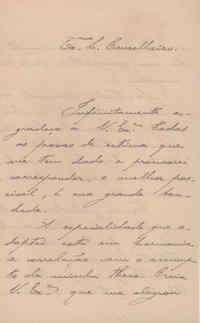 Ex. Sr. Conselheiro.
Infinitamente a-
gradeço à V. Exª. todas
as provas de estima que
me tem dado e procurarei
corresponder, o melhor pos-
sivel, à sua grande bon-
dade.
A especialidade que a-
doptei está em harmonia
e correlação com o assump-
to da minha These. Creia
V. Exª. que me alegrou